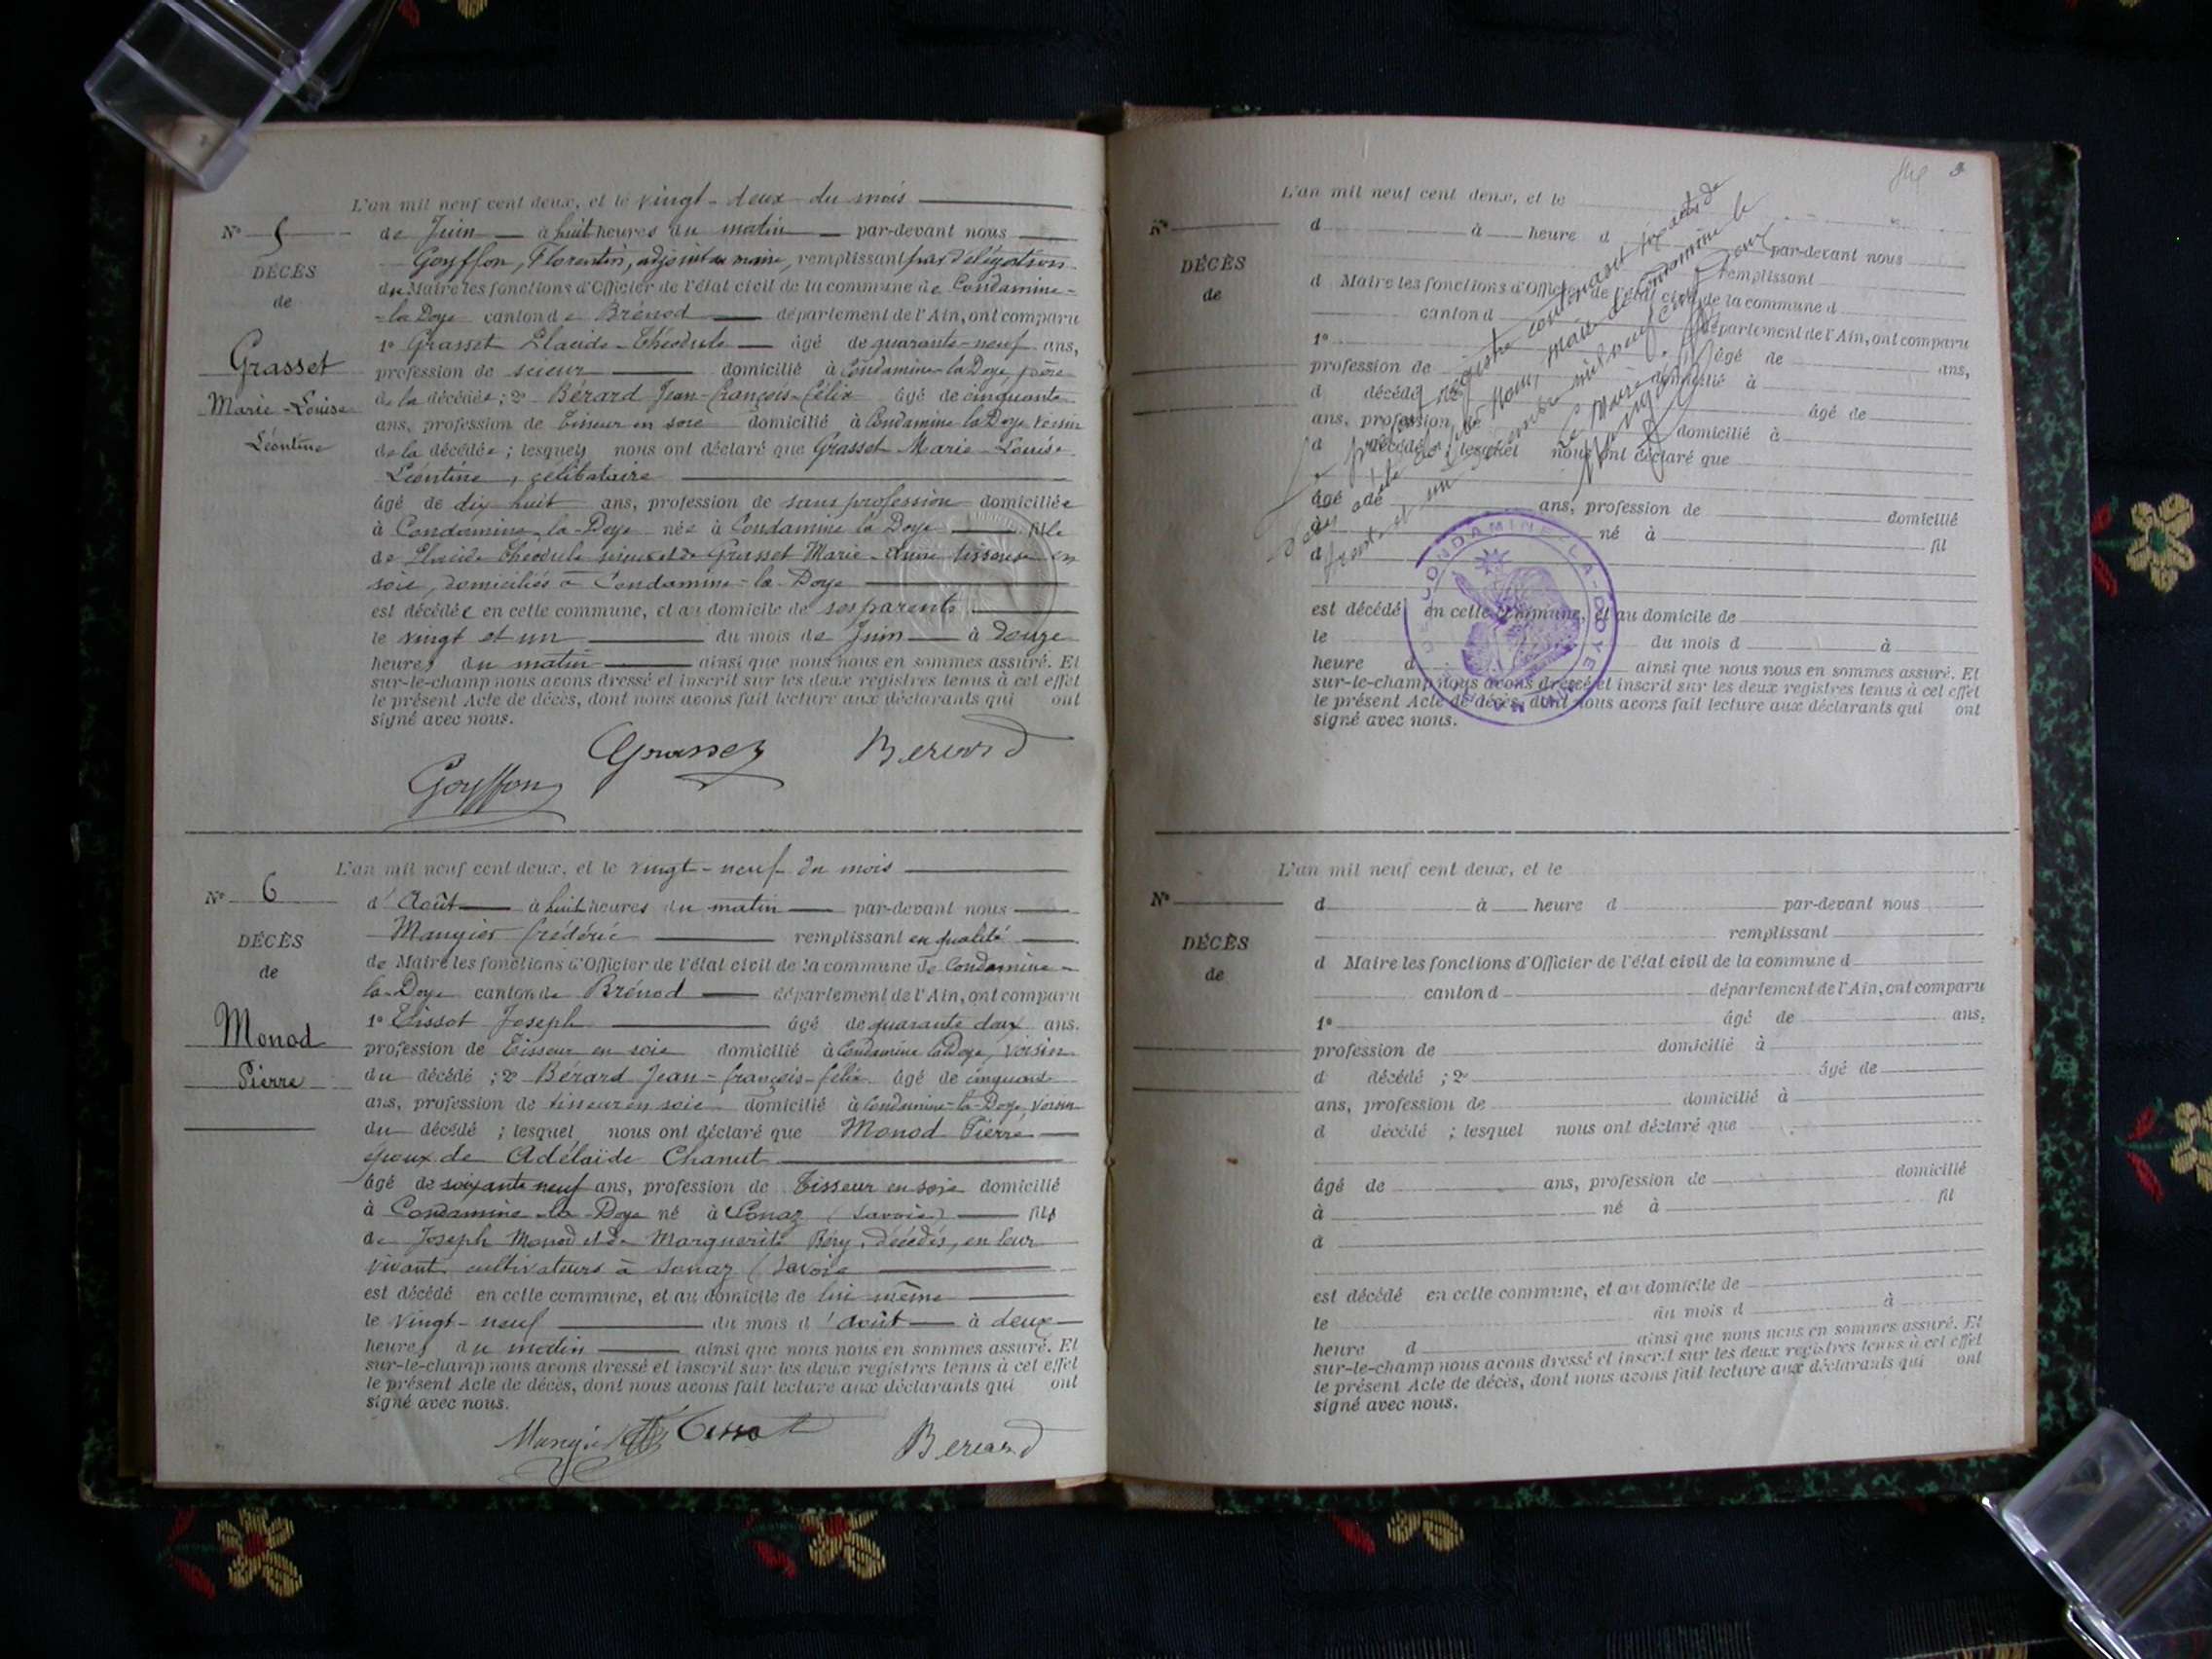 L'an mil neuf cent deux, et le vingt-deux du mois
N° 5
de Juin à huit heures du matin par-devant nous
Goyffon, Florentin, adjoint au maire, remplissant par délégation
DÉCÈS
du Maire les fonctions d'Officier de l'état civil de la commune de Condamine-
de
-la Doye canton de Brénod département de l'Ain, ont comparu
1° Grasset Placide-Théodule âgé de quarante-neuf ans,
Grasset
profession de scieur domicilié à Condamine-la Doye, père
Marie-Louise
de la décédée ; 2° Bérard Jean-François-Félix âgé de cinquante
ans, profession de Tisseur en soie domicilié à Condamine la Doye, voisin
Léontine
de la décédée ; lesquels nous ont déclaré que Grasset Marie-Louise
Léontine, célibataire
âgé de dix huit ans, profession de sans profession domiciliée
à Condamine-la-Doye née à Condamine la Doye fille
de Placide Théodule scieur et de Grasset Marie- tisseuse en
soie, domiciliés à Condamine-la-Doye
est décédée en cette commune, et au domicile de ses parents
le vingt et un du mois de Juin à douze
heures du matin ainsi que nous nous en sommes assuré. Et
sur-le-champ nous avons dressé et inscrit sur les deux registres tenus à cet effet
le présent Acte de décès, dont nous avons fait lecture aux déclarants qui ont
signé avec nous.
Goyffon Grasset Berard
L'an mil neuf cent deux, et le vingt-neuf du mois
N° 6
d'Août à huit heures du matin par-devant nous
Maugier Frédéric remplissant en qualité
DÉCÈS
de Maire les fonctions d'Officier de l'état civil de la commune de Condamine-
de
la-Doye canton de Brénod département de l'Ain, ont comparu
1° Tissot Joseph âgé de quarante deux ans.
Monod
profession de Tisseur en soie domicilié à Condamine la Doye, voisin
Pierre
du décédé ; 2° Bérard Jean-François-Félix âgé de cinquante
ans, profession de tisseur en soie domicilié à Condamine-la-Doye, voisin
du décédé ; lesquel nous ont déclaré que Monod Pierre
époux de Adélaïde Chanut
âgé de soixante neuf ans, profession de Tisseur en soie domicilié
à Condamine-la-Doye né à Sonaz (Savoie) fils
de Joseph Monod et de Marguerite décédés, en leur
vivant cultivateurs à Sonaz (Savoie
est décédé en cette commune, et au domicile de lui même
le vingt-neuf du mois d'août à deux
heures du matin ainsi que nous nous en sommes assuré. Et
sur-le-champ nous avons dressé et inscrit sur les deux registres tenus à cet effet
le présent Acte de décès, dont nous avons fait lecture aux déclarants qui ont
signé avec nous.
Tissot Berard
L'an mil neuf cent deux, et le
N°
d à heure d par-devant nous
DÉCÈS
remplissant
de
d Maire les fonctions d'Officier de l'état civil de la commune d
canton d département de l'Ain, ont comparu
1° âgé de ans,
profession de domicilié à
d décédé ; 2° âgé de
ans, profession de domicilié à
d décédé ; lesquel nous ont déclaré que
âgé de ans, profession de domicilié
à né à fil
d
est décédé en cette commune, et au domicile de
le du mois d à
heure d ainsi que nous nous en sommes assuré. Et
sur-le-champ nous avons dressé et inscrit sur les deux registres tenus à cet effet
le présent Acte de décès, dont nous avons fait lecture aux déclarants qui ont
signé avec nous.
Le présent registre contenant actes de
nous, maire de Condamine le
trente et un mil neuf cent deux
Le Maire
CONDAMINE-LA-DOYE
L'an mil neuf cent deux, et le
N°
d à heure d par-devant nous
remplissant
DÉCÈS
d Maire les fonctions d'Officier de l'état civil de la commune d
de
canton d département de l'Ain, ont comparu
1° âgé de ans,
profession de domicilié à
d décédé ; 2° âgé de
ans, profession de domicilié à
d décédé ; lesquel nous ont déclaré que
âgé de ans, profession de domicilié
à né à fil
d
est décédé en cette commune, et au domicile de
le du mois d à
heure d ainsi que nous nous en sommes assuré. Et
sur-le-champ nous avons dressé et inscrit sur les deux registres tenus à cet effet
le présent Acte de décès, dont nous avons fait lecture aux déclarants qui ont
signé avec nous.